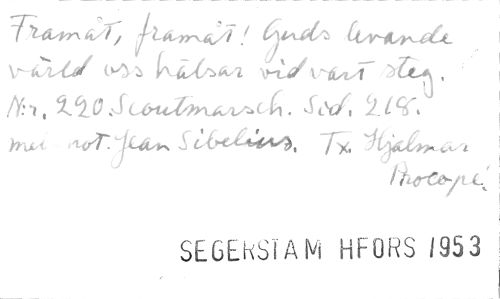 Framåt, framåt! Guds levande
värld oss hälsar vid vart steg.
N:r. 220. Scoutmarsch. Sid. 218.
med not. Jean Sibelius. Tx. Hjalmar
Procopé.
SEGERSTAM HFORS 1953